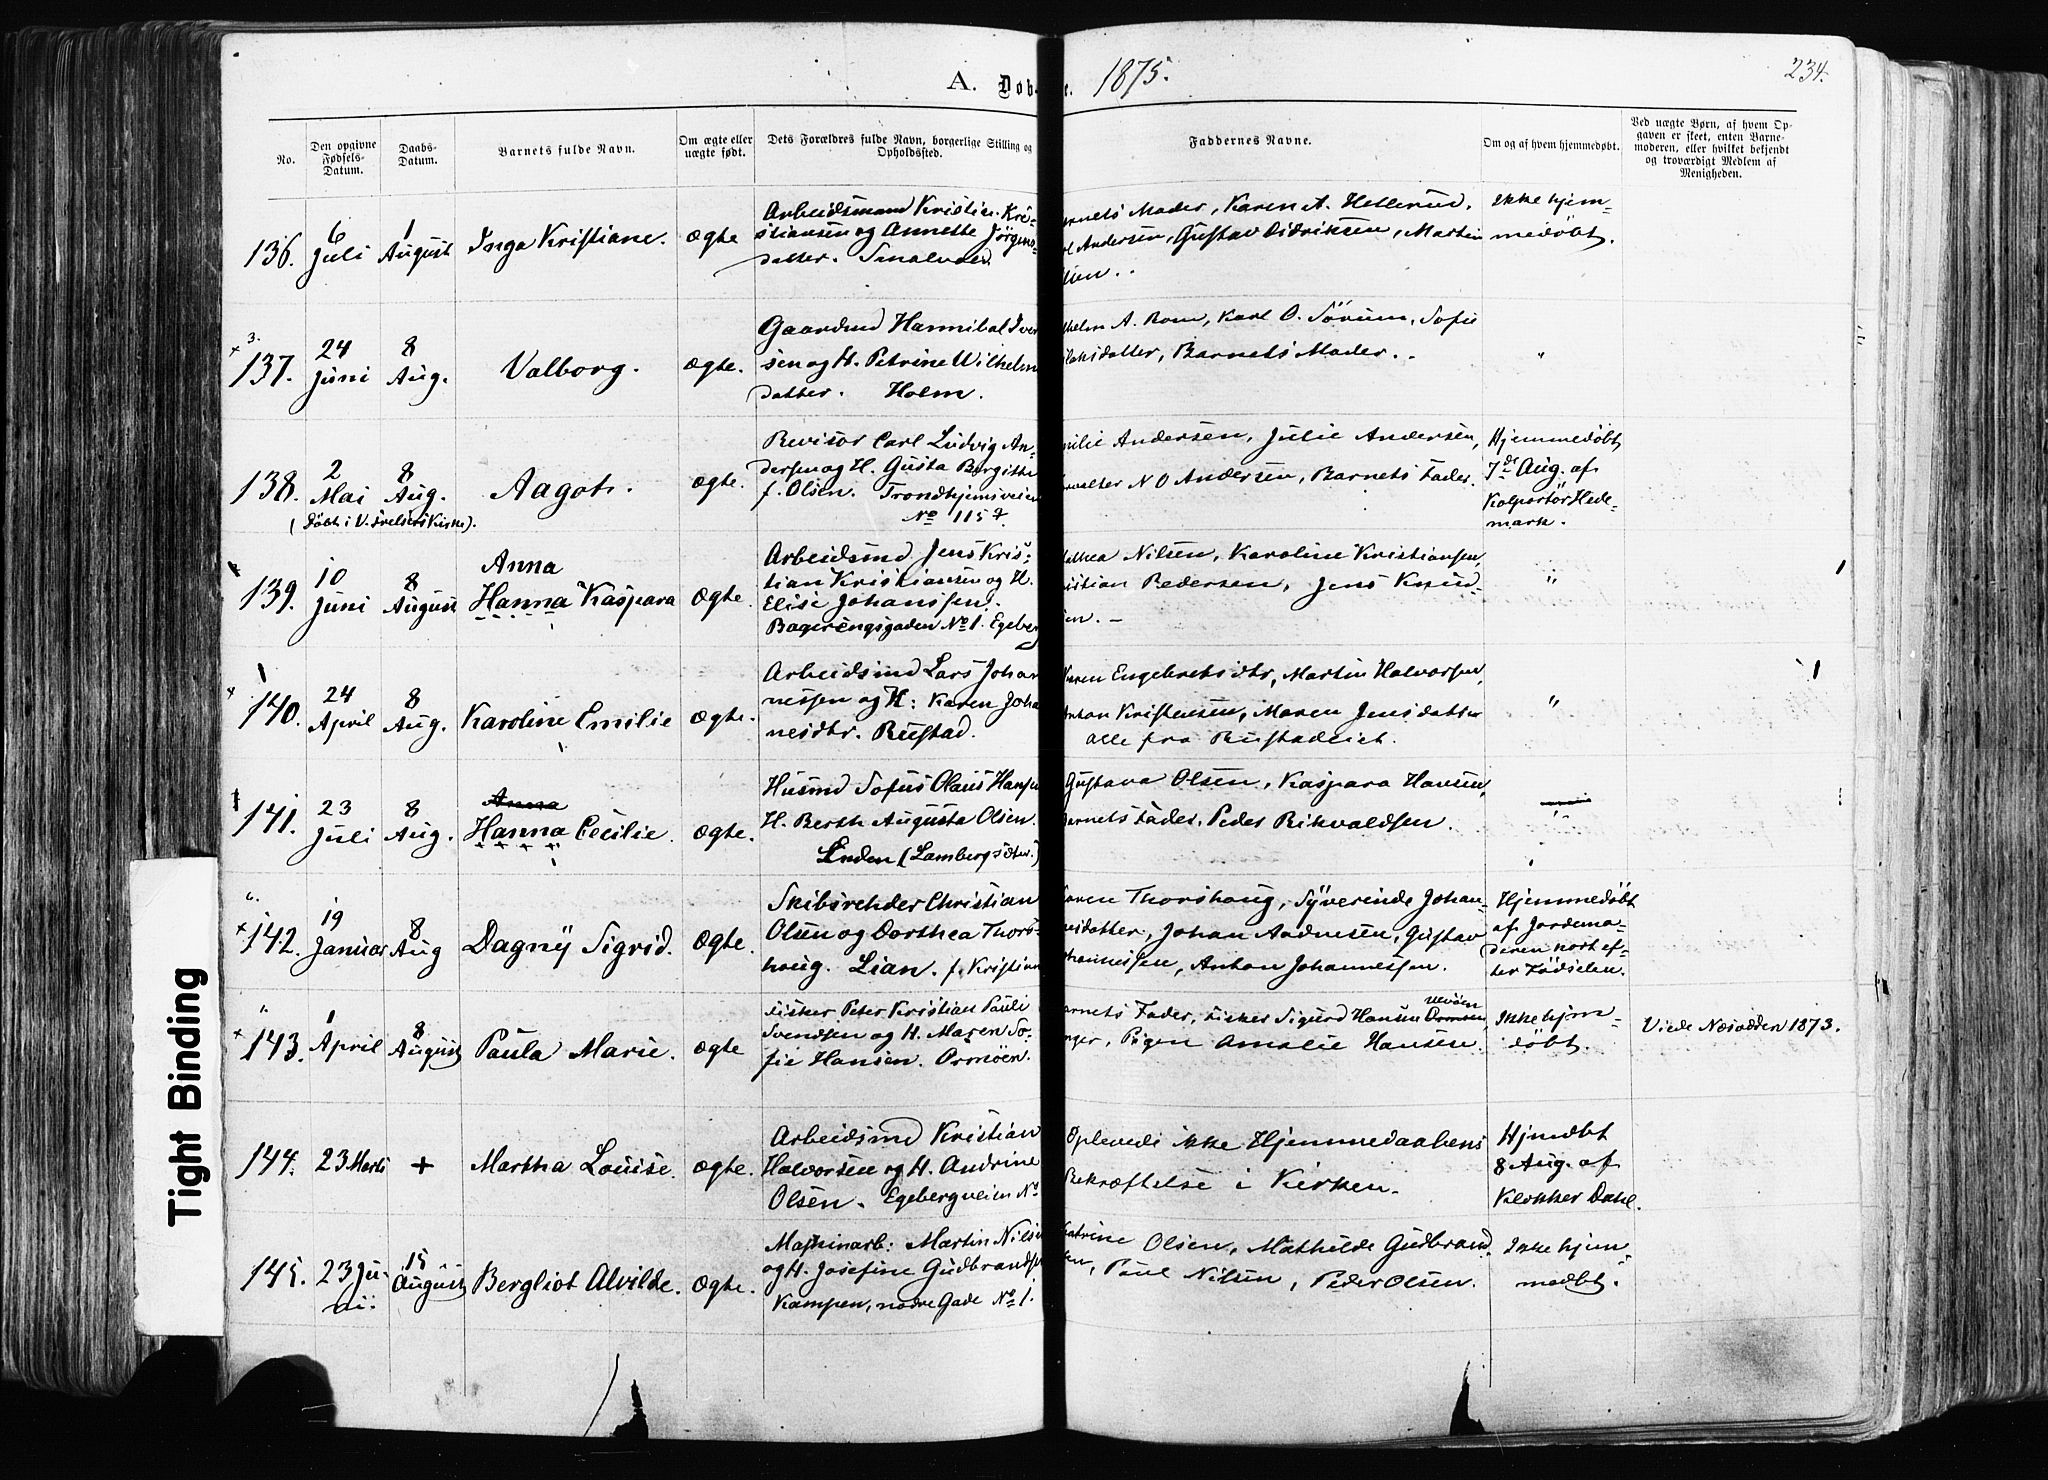 A. Døb e. 1875.
234.
No.
Den opgivne Fødsels-Datum.
Daabs-Datum.
Barnets fulde Navn.
Om ægte eller uægte født.
Dets Forældres fulde Navn, borgerlige Stilling og
Opholdssted.
Faddernes Navne.
Om og af hvem hjemmedøbt.
Ved uægte Børn, af hvem Op-
gaven er skeet, enten Barne-
moderen, eller hvilket bekjendt
og troværdigt Medlem af
Menigheden.
136.
6 Juli
1 August
Inga Kristiane.
Ægte
Arbeidsmand Kristian Kri-
stiansen og Annette Jörgens-
datter.
arnets Moder, Karen A. Hellerud,
Andersen, Gustav Didriksen, Martin
lsen..
Ikke hjem-
medöbt.
3.
137.
24 Juni
8 Aug.
Valborg.
Ægte.
Gaardmd Hannibal Iver
sen og H. Petrine Wilhelm
datter. Holm.
helm A. Rom, Karl O. Sörum, Sofie
laksdatter, Barnets Moder..
"
138.
2 Mai
8 Aug.
(döbt i V. Frelsers Kirke).
Aagot.
Ægte.
Revisor Carl Ludvig An-
dersen og H. Gusta Birgitte
f. Olsen. Trondhjemsveien
No 115
milie Andersen, Julie Andersen,
rvalter N O Andersen, Barnets Fader.
Hjemmedöbt
7de Aug. af
Kolportör Hede-
mark.
139.
10 Juni
8 August
Anna
Hanna Kaspara
Ægte
Arbeidsmd Jens Kris-
tian Kristiansen og H.
Elise Johanssen.
No 1. Egeberg
thea Nilsen, Karoline Kristiansen,
istian Pedersen, Jens Knud-
sen. –
"
140.
24 April
8 Aug.
Karoline Emilie
Ægte.
Arbeidsmd Lars Johan
nessen og H: Karen Joha
nesdtr. Rustad.
Karen Engebretsdtr, Martin Halvorsen,
Anton Kristensen, Maren Jensdatter
alle fra Rustadeiet.
"
141.
23 Juli
8 Aug.
Anna
Hanna Cecilie.
Ægte.
Husmd Sofus Olaus Hansen
H. Berth Augusta Olsen.
Enden (Lambergsæter.)
Gustava Olsen, Kaspara Hansen,
Barnets Fader, Peder Rikvaldsen.
"
142.
19 Januar
8 Aug
Dagny Sigrid.
Ægte.
Skibsreder Christian
Olsen og Dorthea Thors-
haug. Lian. f. Kristian
Karen Thorshaug, Syverinde Johan-
nesdatter, Johan Andresen, Gustav
ohannessen, Anton Johannessen.
Hjemmedöbt
af Jordemo-
deren kort ef-
ter Födselen.
"
143.
1 April
8 August
Paula Marie.
Ægte
Fisker Peter Kristian Pauli
Svendsen og H. Maren So-
fie Hansen. Ormöen.
arnets Fader, Fisker Sigurd Hansen
nger, Pigen Amalie Hansen.
Ikke hjm-
döbt.
Viede Næsodden 1873.
144.
23 Marts
+
Martha Louise.
Ægte.
Arbeidsmd Kristian
Halvorsen og H. Andrine
Olsen. Egebergveien No
Oplevede ikke Hjemmedaabens
Bekræftelse i Kirken.
Hjmdbt
8 Aug. af
Klokker Dahl.
145.
23 Ju-
ni.
15 August
Bergliot Alvilde.
Ægte.
Maskinarb: Martin Nilsen
og H. Josefine Gudbrandsen
Kampen, nordre Gade No 1.
Katrine Olsen, Mathilde Gudbrand
sen, Paul Nilsen, Peder Olsen.
Ikke hjem-
medbt.
Tight Binding